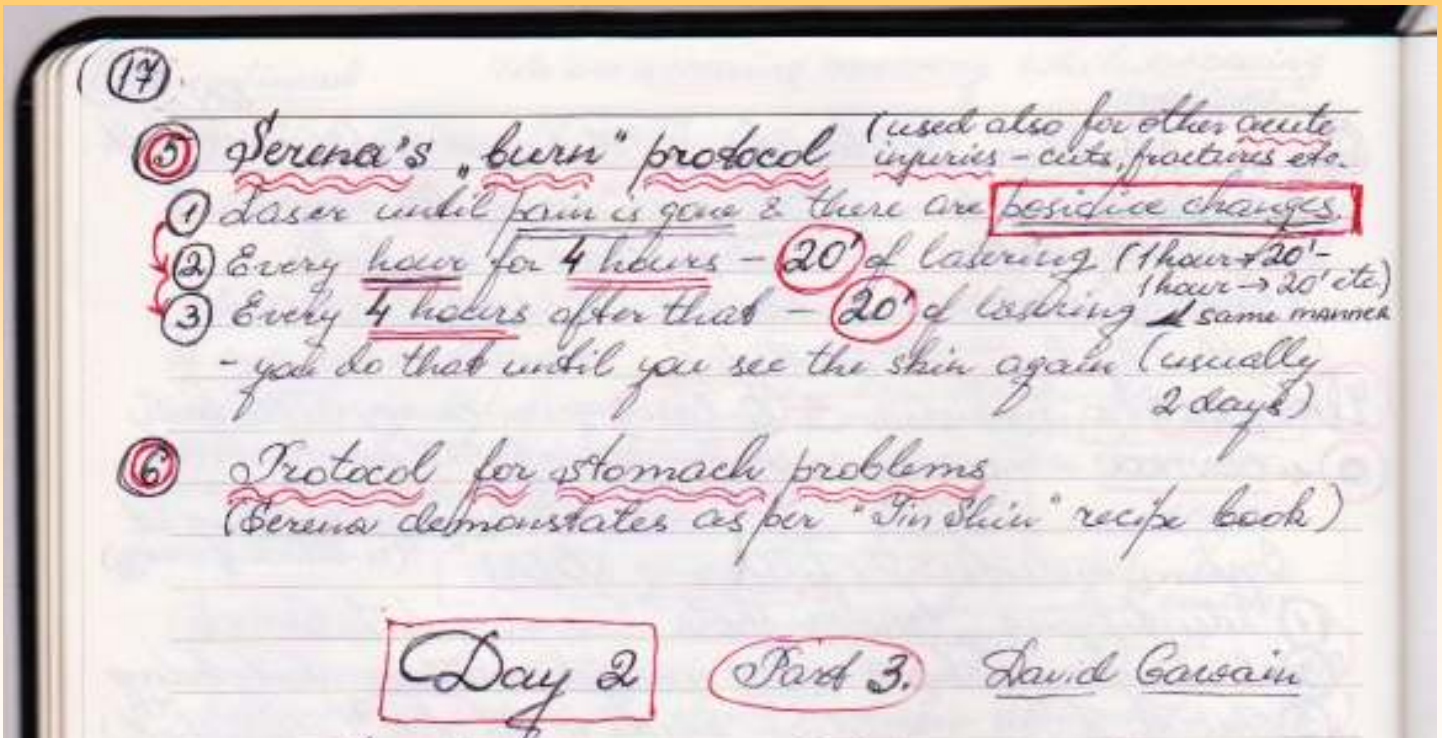 (17).
5 Serena's „burn" protocol (used also for other acute
injuries - cuts, fractures etc.
1 Laser until pain is gone & there are positive changes.
2 Every hour for 4 hours - 20' of lasering (1 hour → 20' -
1 hour → 20' etc.)
3 Every 4 hours after that - 20' of lasering same manner
- you do that until you see the skin again (usually
2 days)
6 Protocol for stomach problems
(Serena demonstates as per "Jin Shin" recipe book)
Day 2 Part 3. David